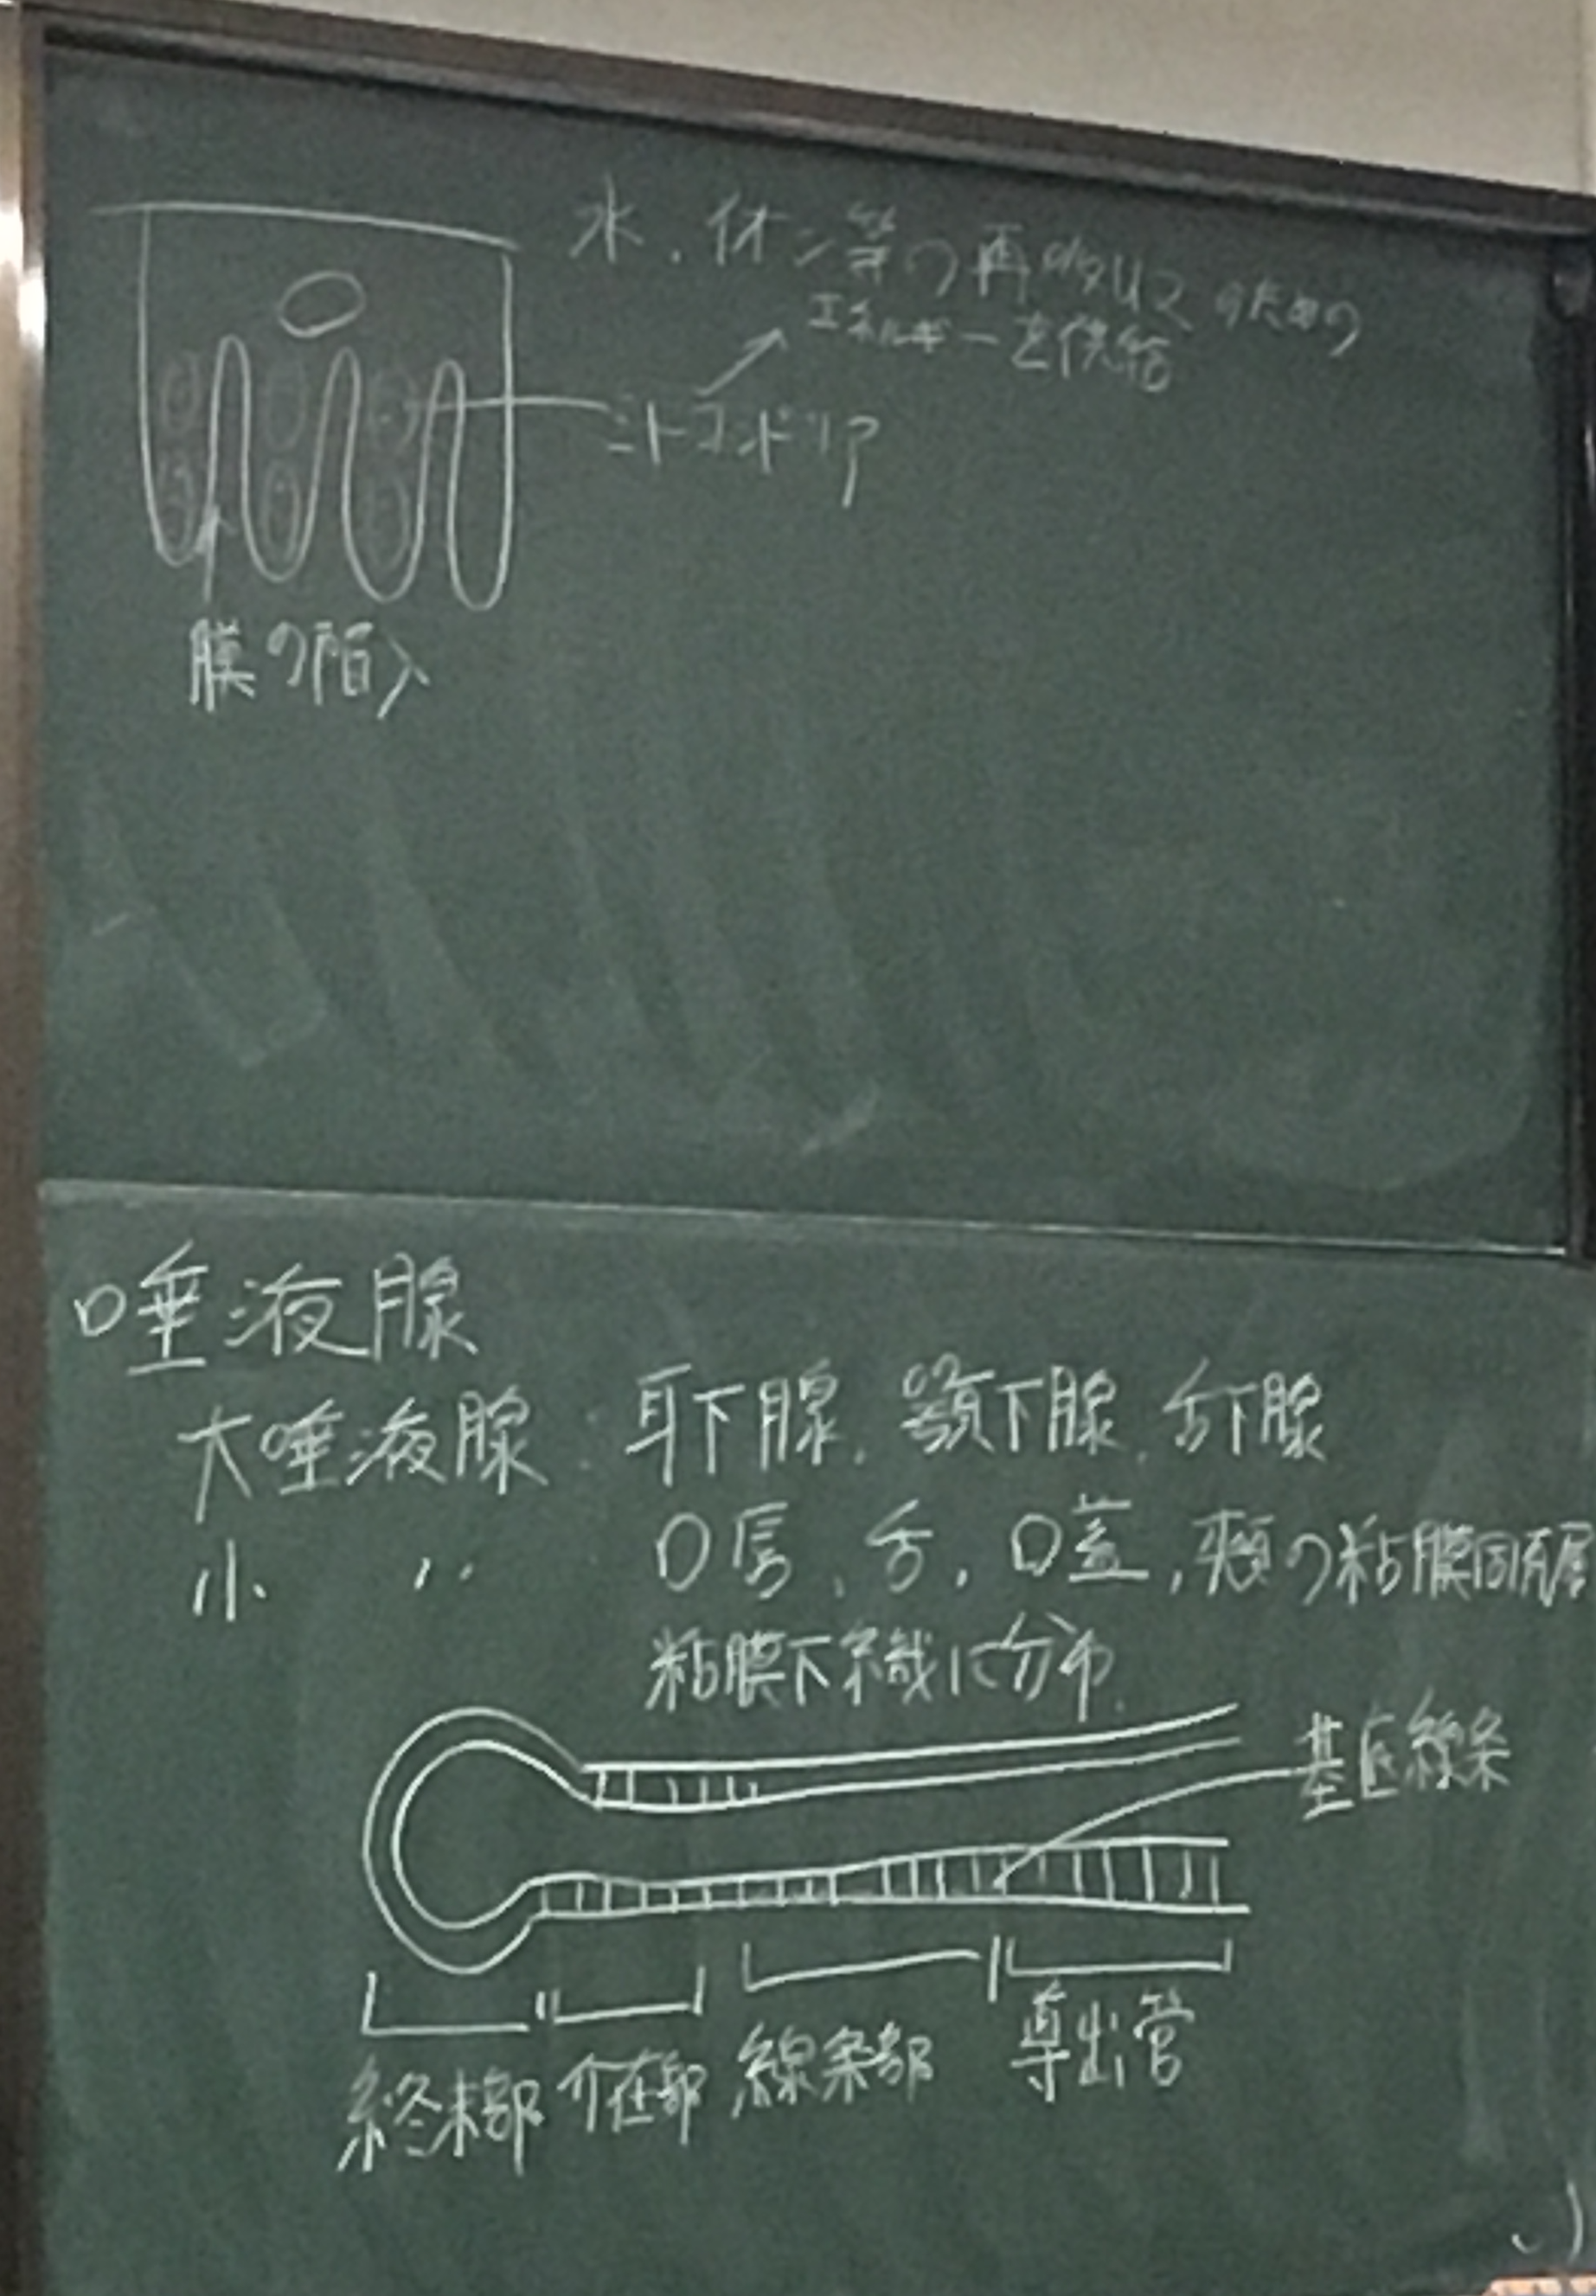 水、イオン等の再吸収のための
エネルギーを供給
ミトコンドリア
膜の陥入
唾液腺
大唾液腺:耳下腺、顎下腺、舌下腺
小 〃 口唇、舌、口蓋、頬の粘膜固有層
粘膜下組織に分布
基底線条
終末部 介在部 線条部 導出管